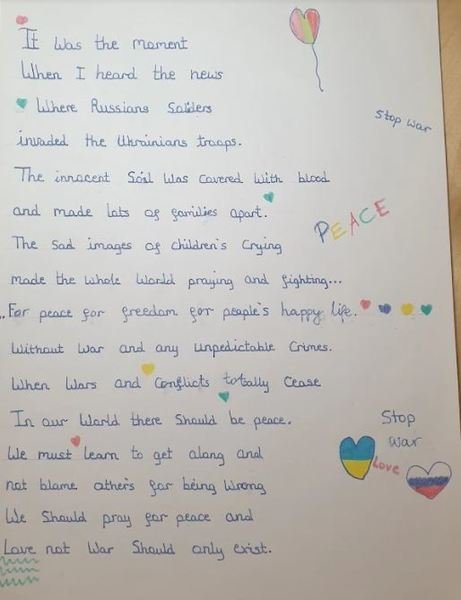 It was the moment
When I heard the news
Where Russians Soilders
invaded the Ukrainians troops.
Stop war
The innocent Soil was covered with blood
and made lots of families apart.
PEACE
The sad images of children's Crying
made the whole world praying and fighting...
..For peace for freedom for people's happy life.
Without war and any unpedictable Crimes.
When Wars and Conflicts totally Cease
In our World there should be peace.
Stop
war
We must learn to get along and
Love
not blame others for being wrong
We Should pray for peace and
Love not War Should only exist.